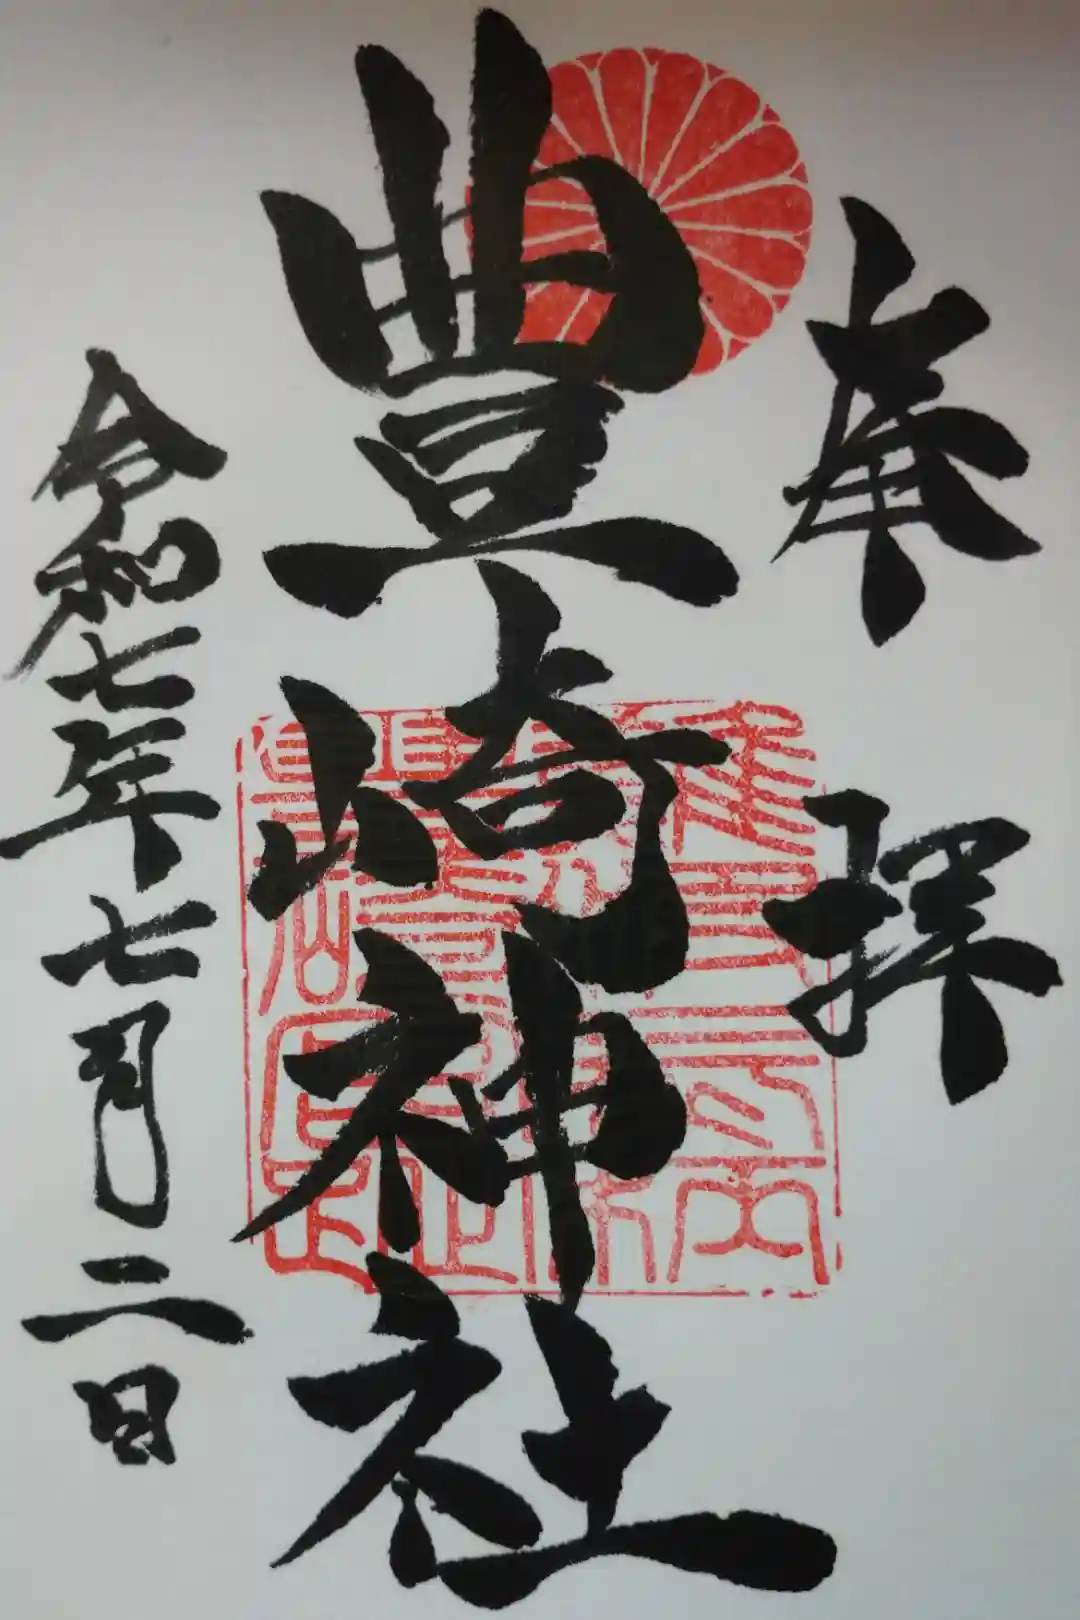 奉拝
豊崎神社
令和七年七月二日